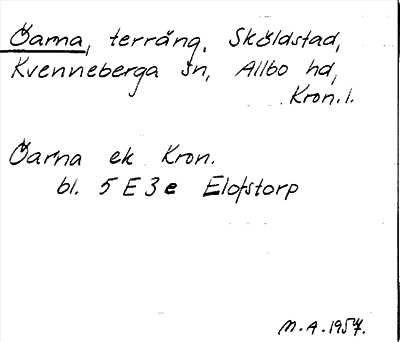 Öarna, terräng, Sköldstad,
Kvenneberga sn, Allbo hd,
Kron. l.
Öarna ek Kron.
bl. 5 E 3 e Elofstorp
M.A. 1957.